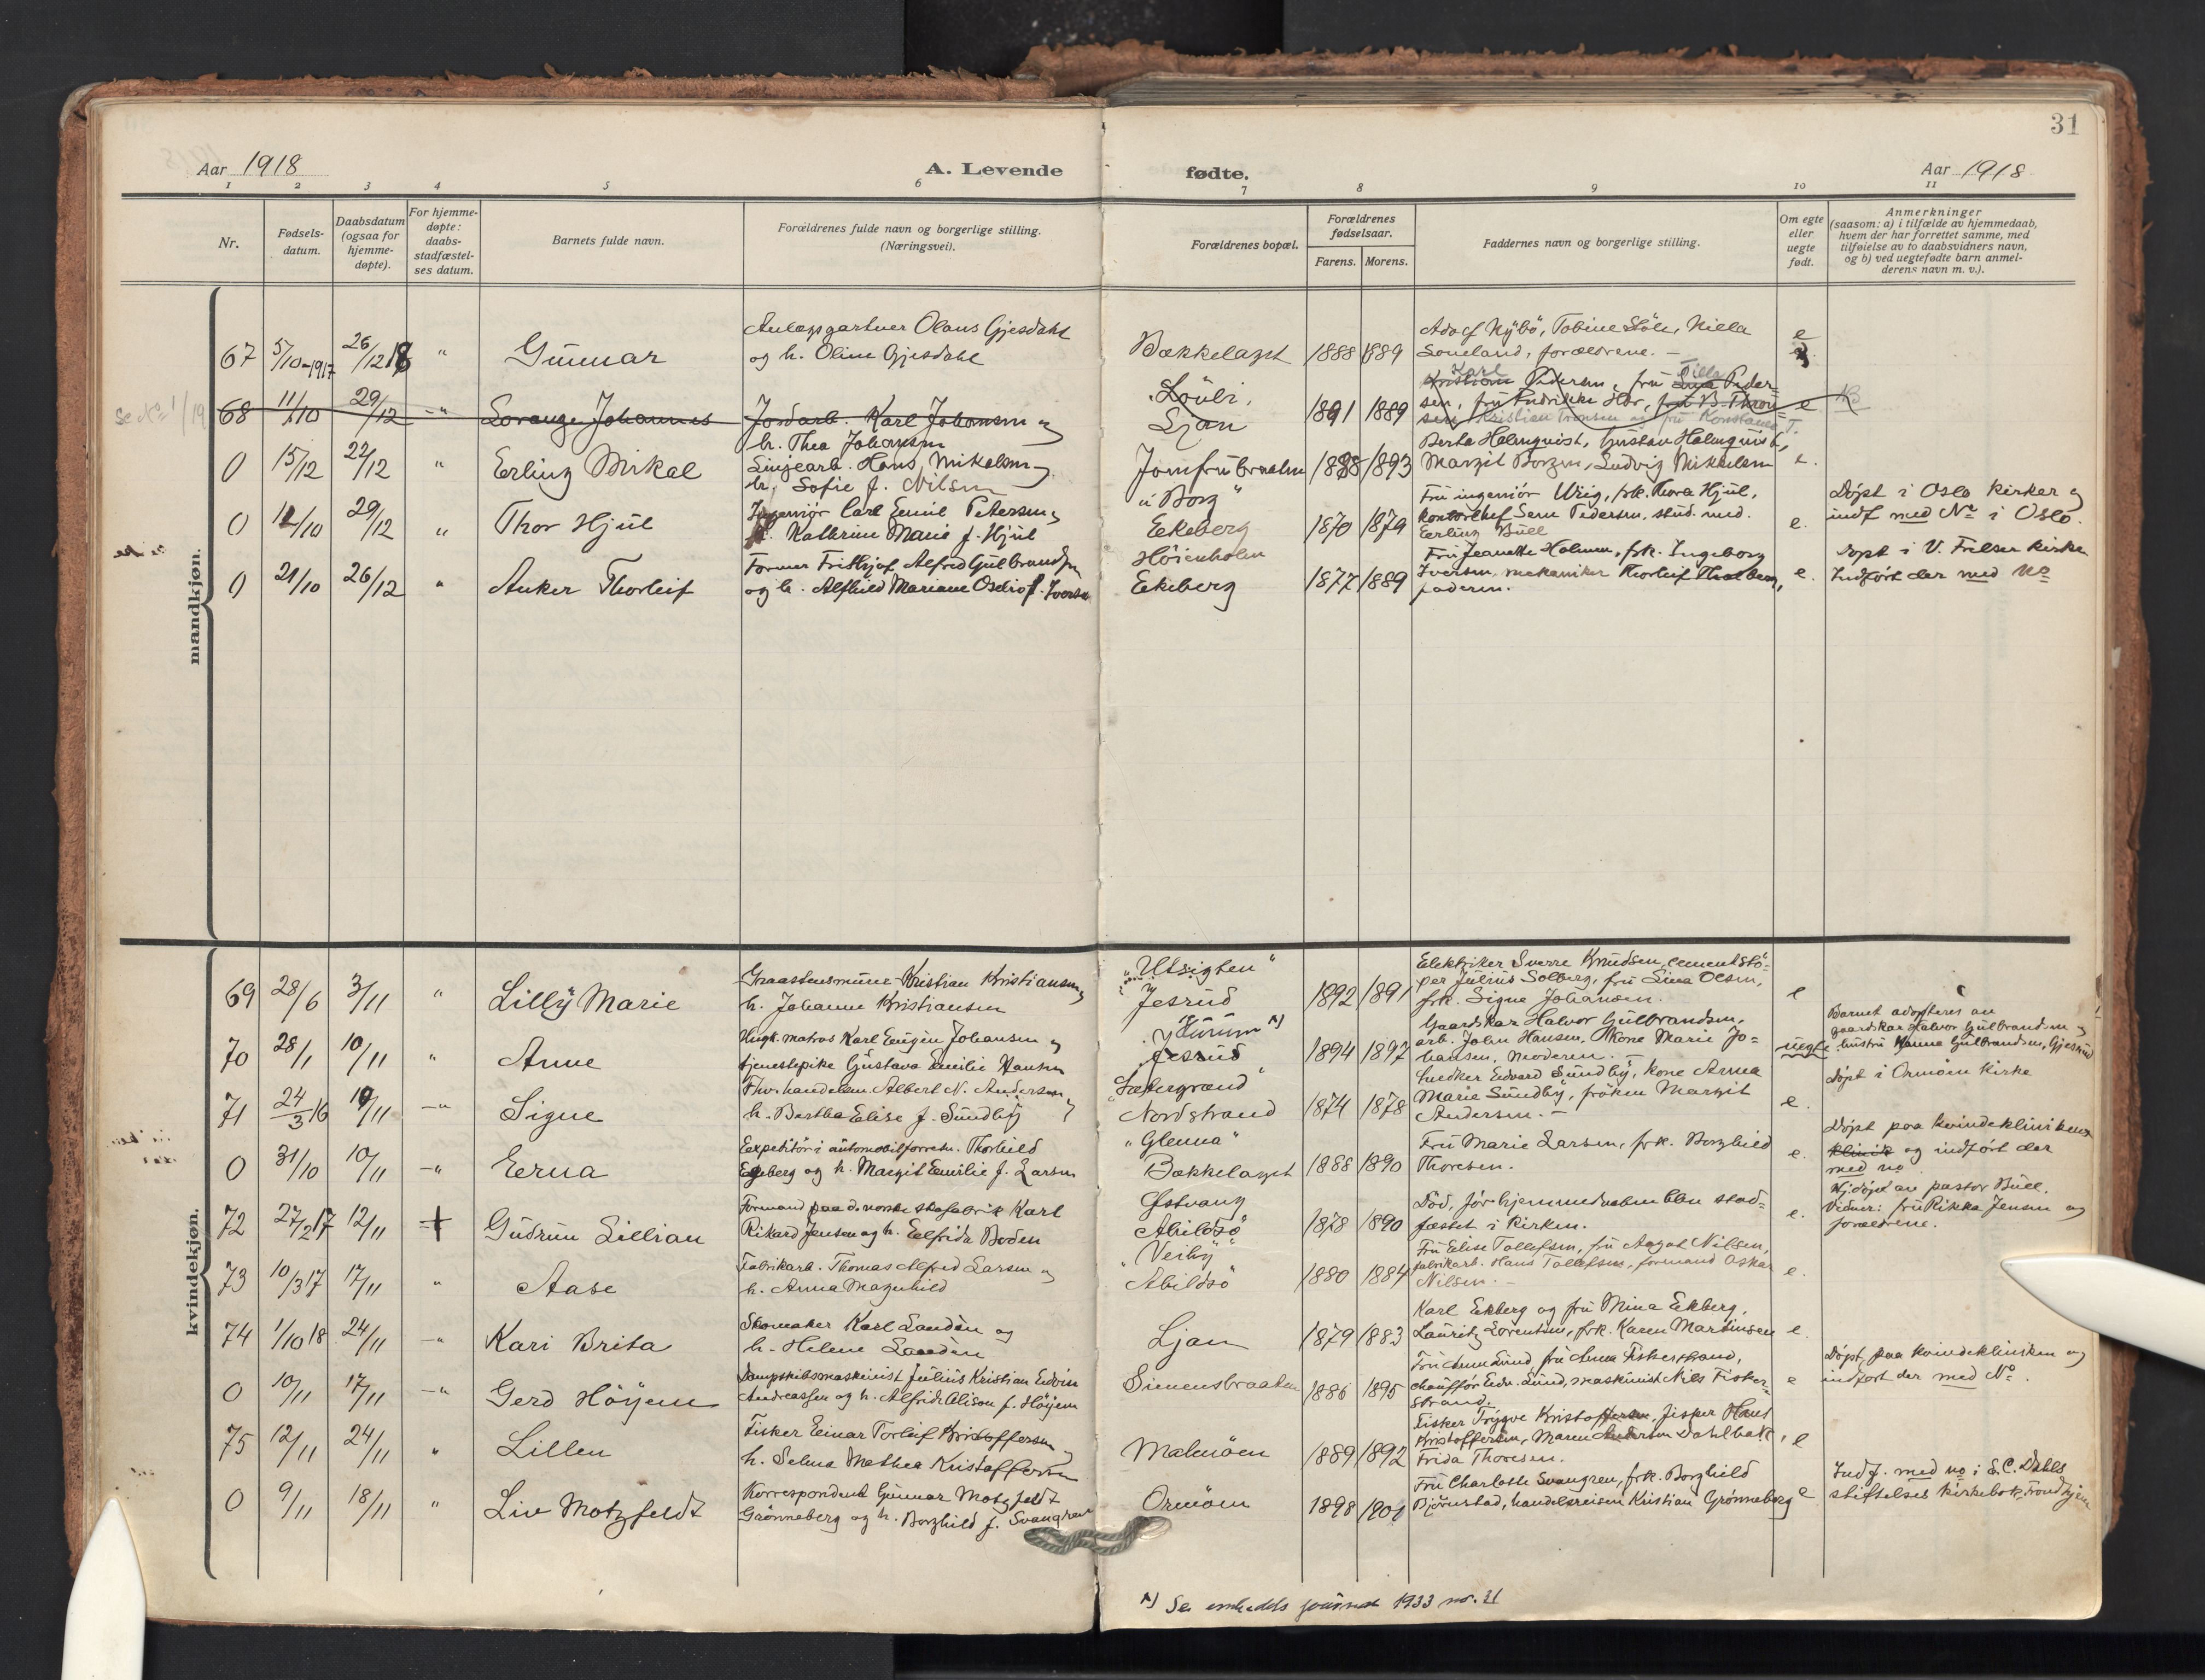 31
Aar 1918
A. Levende fødte.
Aar 1918
1 2 3 4 5 6 7 8 9 10 11
Nr.
Fødsels-
datum.
Daabsdatum
(ogsaa for
hjemme-
døpte).
For hjemme-
døpte:
daabs-
stadfæstel-
ses datum.
Barnets fulde navn.
Forældrenes fulde navn og borgerlige stilling.
(Næringsvei).
Forældrenes bopæl.
Forældrenes
fødselsaar.
Farens. Morens.
Faddernes navn og borgerlige stilling.
Om egte
eller
uegte
født.
Anmerkninger
(saasom: a) i tilfælde av hjemmedaab,
hvem der har forrettet samme, med
tilføielse av to daabsvidners navn,
og b) ved uegtefødte barn anmel-
derens navn m. v.).
mandkjøn.
67 5/10-1917 26/12 18 " Gunnar
Anlægsgartner Olaus Gjesdahl
og h. Oline Gjesdahl
Bækkelaget 1888 1889
Adolf Nybö, Tobine Störe, Nilla
Soneland, forældrene. -
e
Se No 1/19
68 11/10 29/12 -"- Sorange Johannes
Jordarb. Karl Johansen og
h. Thea Johansen
Ljan
1891 1889
Karl Pedersen, fru Peder=
sen, fru
e
0 15/12 22/12 " Erling Mikal
Linjearb. Hans Mikelsen og
h. Sofie f. Nilsen
Jomfrubraaten 1888 1893
Berta Holmquist, Gustav Holmquist,
Margit Borgen, Ludvig Mikkelsen
e.
0 12/10 29/12 " Thor Hjul
Ingeniør Carl Eemil Petersen og
h. Kathrine Marie f. Hjul
"Borg"
Ekeberg
1870 1879
Fru ingeniör Urig, frk. Thora Hjul,
kontorchef Sem Pedersen, stud. med.
Erling Bull
e.
Döpt i Oslo kirke og
indf med No i Oslo.
0 21/10 26/12 " Anker Thorleif
Former Frithjof Alfred Gulbrandsen
og h. Alfhild Mariane Oselio f. Iversen
Höienholm
Ekeberg
1877 1889
Fru Jeanette Holmen, frk. Ingeborg
Iversen, mekaniker Thorleif Thorbem,
faderen.
e.
Döpt i V. Frelser kirke
Indfört der med No
kvindekjøn.
69 28/6 3/11 " Lilly Marie
Graastensmurer Kristian Kristiansen og
h. Johanne Kristiansen
"Utsigten"
Gjesrud
1892 1891
Elektriker Sverre Knudsen, cementstö=
per Julius Solberg, fru Lina Olsen,
frk. Signe Johansen.
e
70 28/1 10/11 " Anne
Hugk. matros Karl Eeugen Johansen og
tjenestepike Gustava Emilie Hansen
Gjesrud
1894 1897
Gaardskar Halvor Gulbrandsen,
arb. John Hansen, kone Marie Jo=
hansen, moderen. -
uegte
Barnet adopteres av
gaardskar Halvor Gulbrandsen og
hustru Hanna Gulbrandsen, Gjesrud
71 24/3 16 10/11 -"- Signe
Thv. handelsm. Albert N. Andersen og
h. Bertha Elise f. Sundby
"Sætergrænd"
Nordstrand
1874 1878
Snedker Edvard Sundby, kone Anna
Marie Sundby, fröken Margit
Andersen. -
e.
Döpt i Ormöen kirke
0 31/10 10/11 -"- Eerna
Expeditör i automobilforretn. Thorleid
Egeberg og h. Margit Emilie f. Larsen
"Glenna"
Bækkelaget
1888 1890
Fru Marie Larsen, frk. Borghild
Thoresen.
e.
Döpt paa kvindekliniken
klinik og indfört der
med no
72 27/2 17 12/11 + Gudrun Lillian
Formand paa d. norske skofabrik Karl
Rikard Jensen og h. Eelfrida Boden
Østvang
Abildsö
1878 1890
Död, för hjemmedaaben blev stad=
fæstet i kirken.
e.
Hj.döpt av pastor Bull.
Vidner: fru Rikka Jensen og
forældrene.
73 10/3 17 17/11 " Aase
Fabrikarb. Thomas Alfred Larsen og
h. Anna Magnhild
"Veiby"
Abildsö
1880 1884
Fru Elise Tollefsen, fru Aagot Nilsen,
fabrikarb. Hans Tollefsen, formand Oskar
Nilsen. -
e.
74 1/10 18 24/11 -"- Kari Brita
Skomaker Karl Landén og
h. Helene Landén
Ljan 1879 1883
Karl Ekberg og fru Mina Ekberg,
Lauritz Lorentsen, frk. Karen Martinsen
e.
0 10/11 17/11 -"- Gerd Höyem
Dampskibsmaskinist Julius Kristian Edvin
Andreassen og h. Alfride Alison f. Höyem
Simensbraaten 1886 1895
Fru Anna Lund, fru Anna Fiskerstrand,
chauffór Edv. Lund, maskinist Nils Fisker=
strand.
e
Döpt paa kvindekliniken og
indfört der med No.
75 12/11 24/11 " Lillen
Fisker Eeinar Torleif Kristoffersen og
h. Selma Mathea Kristoffersen
Malmöen 1889 1892
Fisker Trygve Kristoffersen, fisker Hans
Kristoffersen, Maren Dahlbak,
Frida Thoresen.
e
0 9/11 18/11 " Liv Motzfeldt
Korrespondent Gunnar Motzfeldt
Grönneberg og h. Borghild f. Svangren
Ormöen 1898 1901
Fru Charlotte Svangren, frk. Borghild
Björnstad, handelsreisen Kristian Grønneberg
e
Indf. med no i E.C. Dahls
stiftelses kirkebok, Trondhjem
x) Se embedds journal 1933 nr. 31